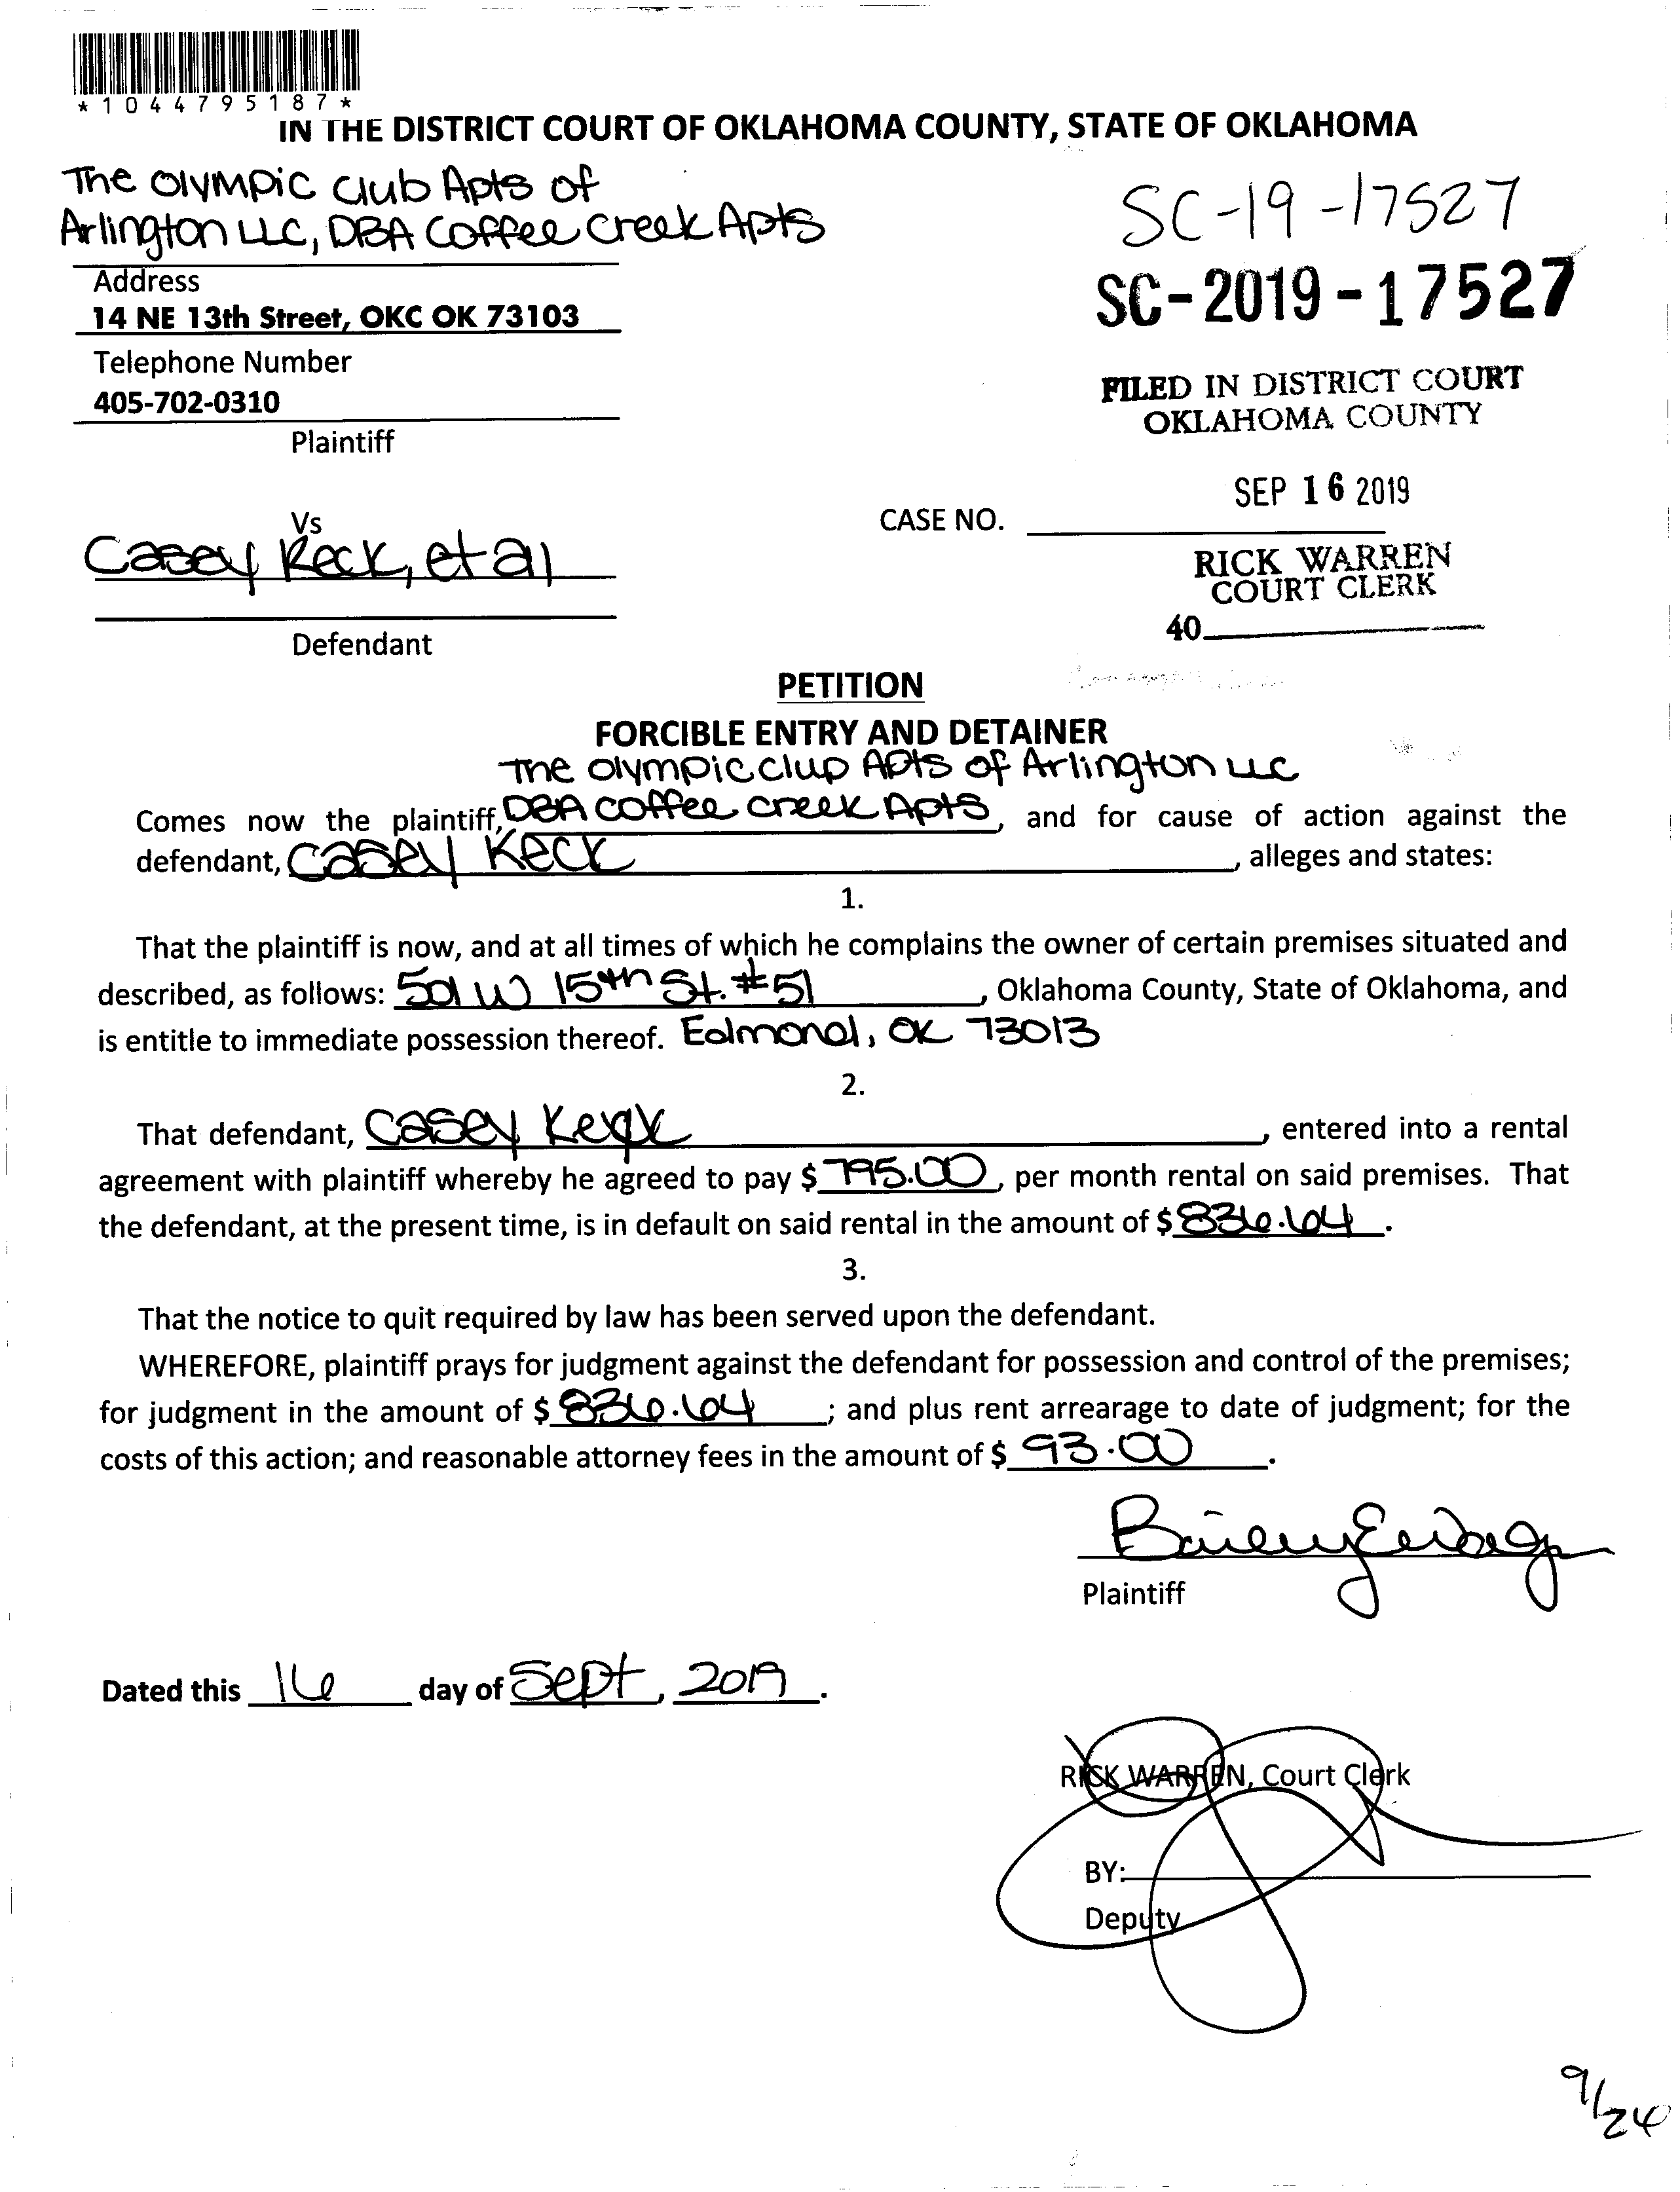 *1044795187*
IN THE DISTRICT COURT OF OKLAHOMA COUNTY, STATE OF OKLAHOMA
The Olympic Club Apts of
Arlington LLC, DBA Coffee Creek Apts
SC-19-17527
SC-2019-17527
Address
14 NE 13th Street, OKC OK 73103
Telephone Number
405-702-0310
Plaintiff
FILED IN DISTRICT COURT
OKLAHOMA COUNTY
SEP 16 2019
Vs
CASE NO.
Casey Keck, et al
RICK WARREN
COURT CLERK
40
Defendant
PETITION
FORCIBLE ENTRY AND DETAINER
The Olympic Clup Apts of Arlington LLC
Comes now the plaintiff, DBA Coffee Creek Apts, and for cause of action against the
defendant, Casey Keck, alleges and states:
1.
That the plaintiff is now, and at all times of which he complains the owner of certain premises situated and
described, as follows: 501 W 15th St. #51, Oklahoma County, State of Oklahoma, and
is entitle to immediate possession thereof. Edmond, OK 73013
2.
That defendant, Casey Keck, entered into a rental
agreement with plaintiff whereby he agreed to pay $ 795.00, per month rental on said premises. That
the defendant, at the present time, is in default on said rental in the amount of $ 836.64.
3.
That the notice to quit required by law has been served upon the defendant.
WHEREFORE, plaintiff prays for judgment against the defendant for possession and control of the premises;
for judgment in the amount of $ 836.64; and plus rent arrearage to date of judgment; for the
costs of this action; and reasonable attorney fees in the amount of $ 93.00.
Plaintiff
Dated this 16 day of Sept, 2019.
RICK WARREN, Court Clerk
BY:
Deputy
9/24